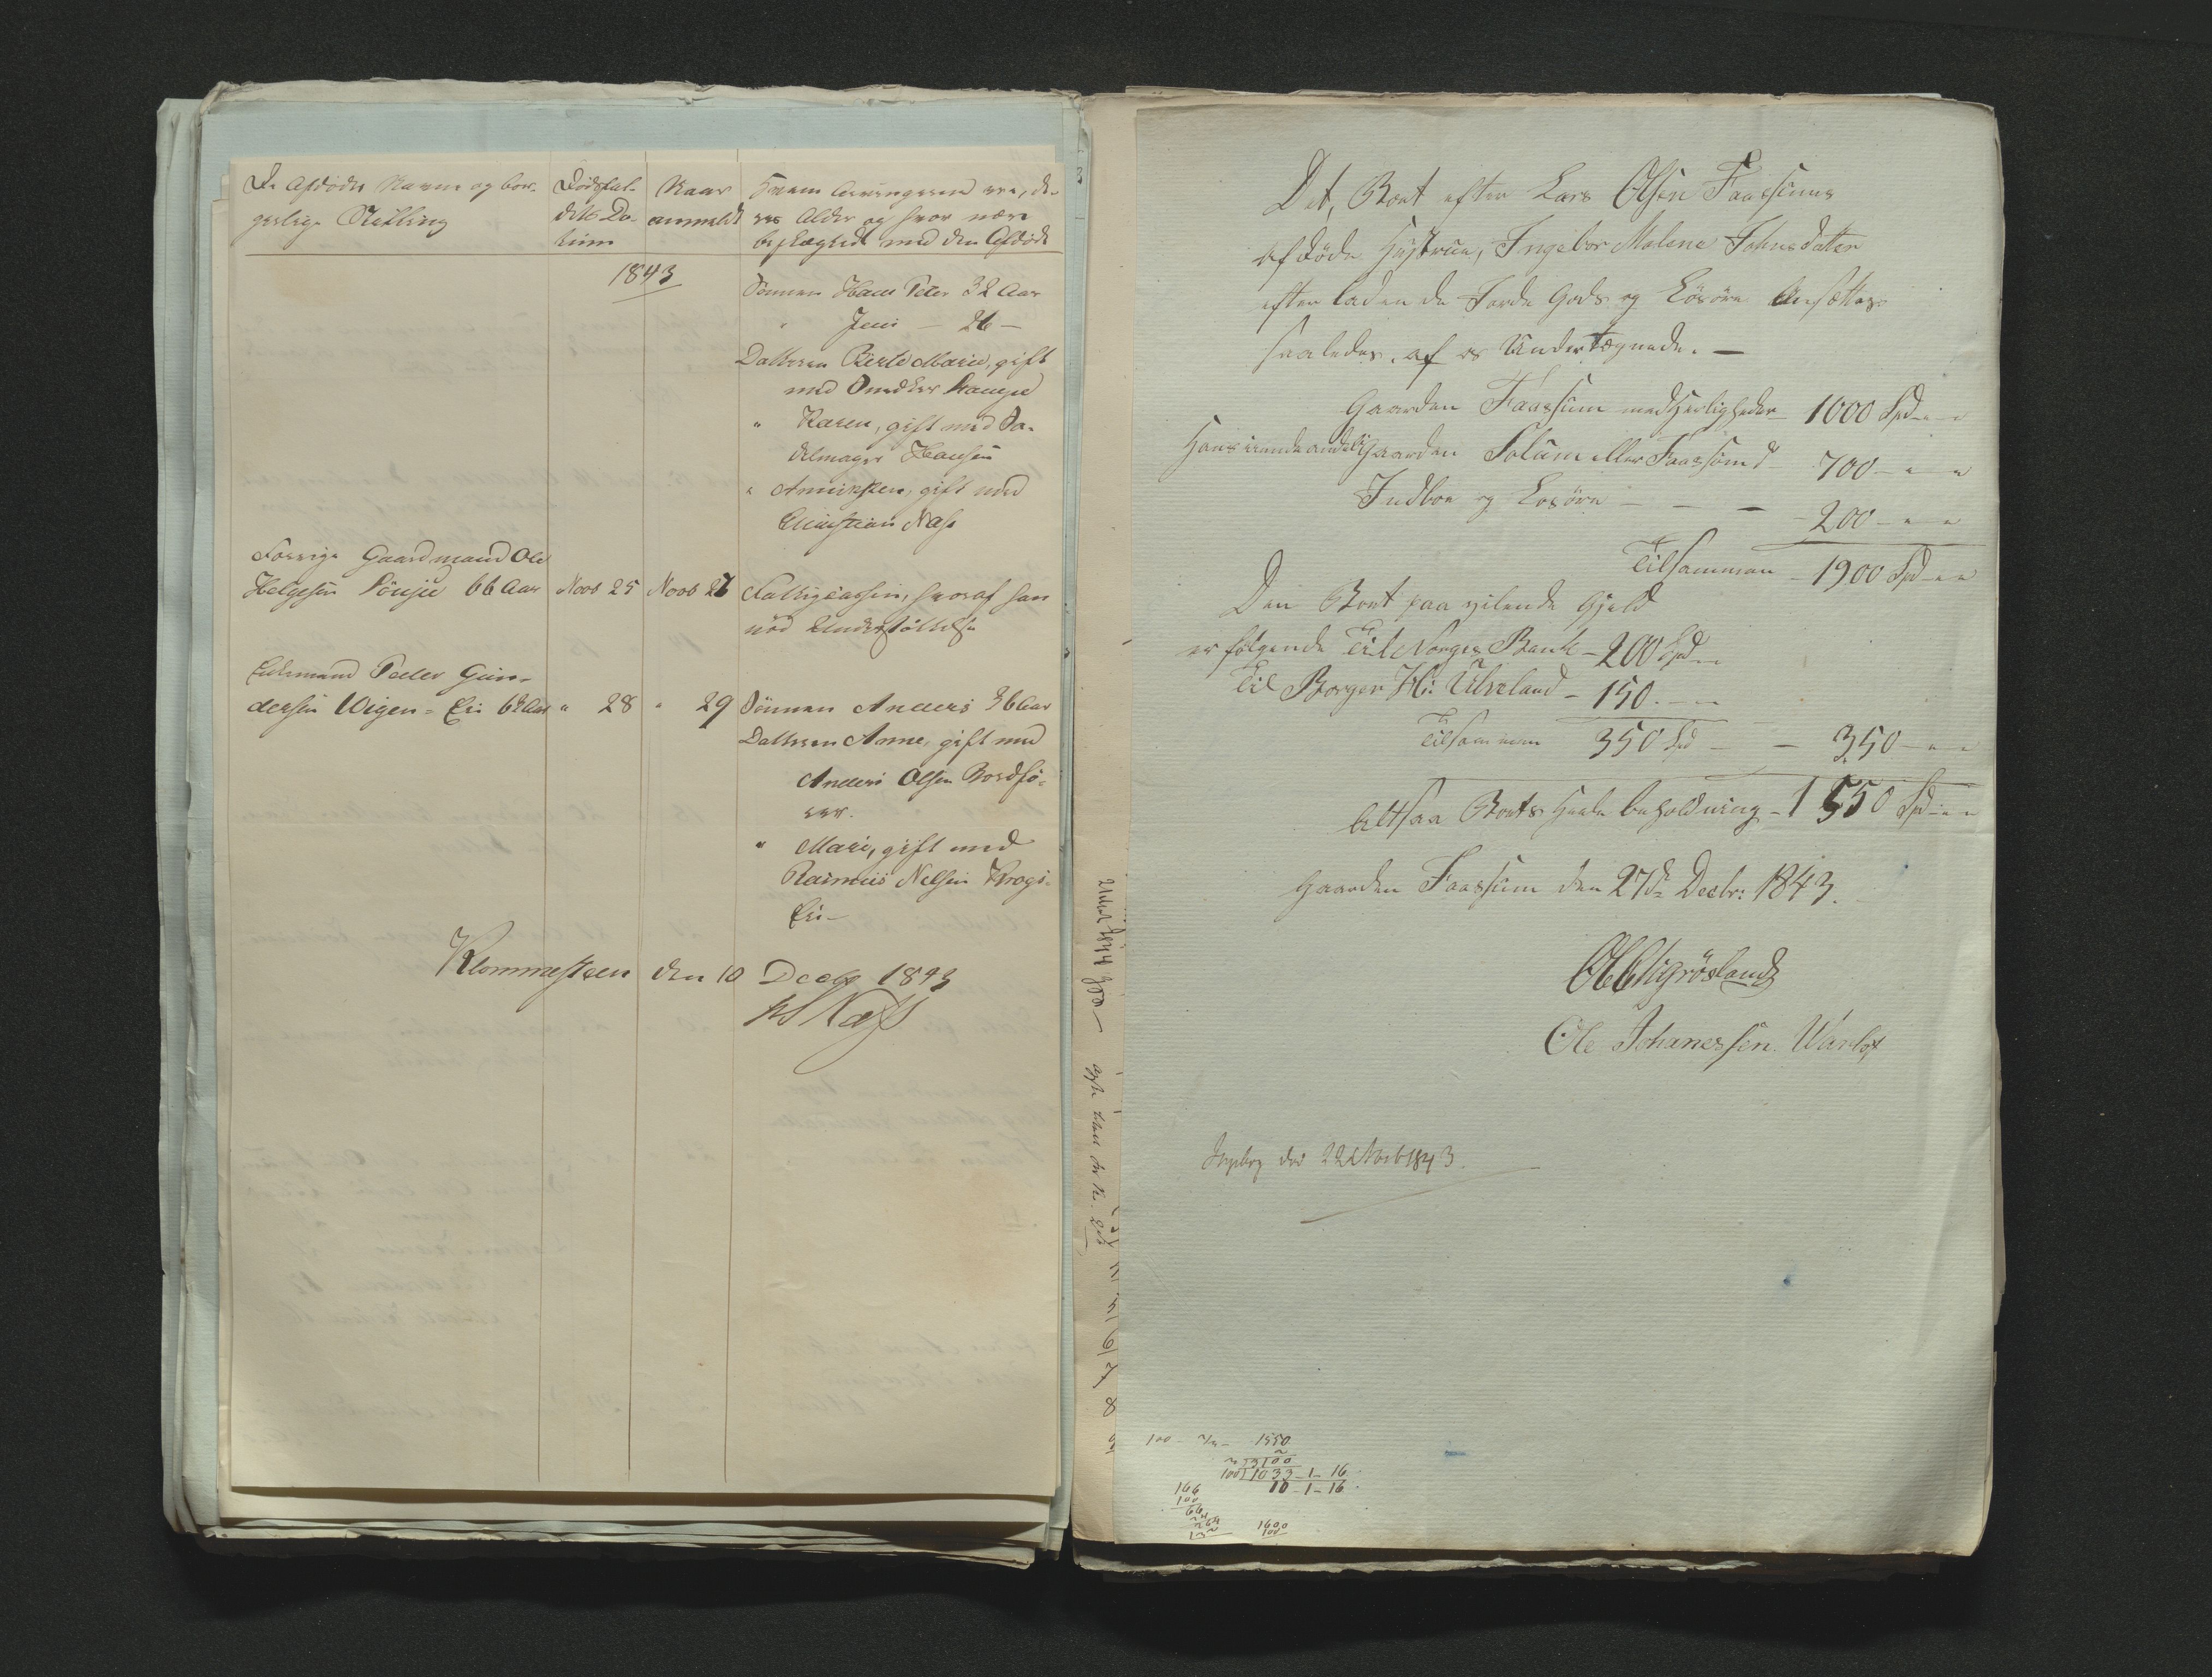 De Afdødes Navne og bor-
gerlige Stilling
Dødsfal-
dets Da-
tum
Naar
anmeldt
Hvem Arvingerne ere, de-
res Alder og hvor nære
beslægtede med den Afdøde
1843
Sønnen Hans Peter 32 Aar
" Jens — 26 —
Datteren Berte Marie, gift
med Snedker
" Karen, gift med Sa-
delmager Hansen
" Annichen, gift med
Christian Næss
Forrige Gaardmand Ole
Helgesen 66 Aar
Novb 25
Novb 27
Fattigcassen, hvoraf han
nød Understøttelse
Peder Gun-
dersen Wigen-Eie 62 Aar
" 28
" 29
Sønnen Anders 36 Aar
Datteren Anne, gift med
Anders Olsen
" Mari, gift med
Rasmus Nelsen Krogs-
Eie
Klommesteen den 10 Decbr 1843
Næss
Det, Boet efter Lars Olsen Faassums
afdøde Hustrue, Ingebor Malene Johnsdatter
efterladende Jorde Gods og Løsøre Ansættes
saaledes af os Undertegnede. —
Gaarden Faassum med Herligheder 1000 Spd - "
Hans i Gaarden Solum eller Faassum 700 - " - "
Indboe og Løsøre — — — 200 - " - "
Tilsammen — 1900 Spd - " - "
Den Boet paa hvilende Gjeld
er følgende Til Norges Bank — 200 Spd
Til Borger H: Ulveland — 150 - "
Tilsammen 350 Spd — — 350 - " - "
Altsaa Boets Heele beholdning — 1550 Spd - " - "
Gaarden Faassum den 27de Decbr: 1843.
Ole Johanessen
Ingebog død 22 Novb 1843.
100 — 2/3 — 1550
2
3 | 3100
100 | 1033 - 1 - 16
10 - 1 - 16
166
100
66
1600
100